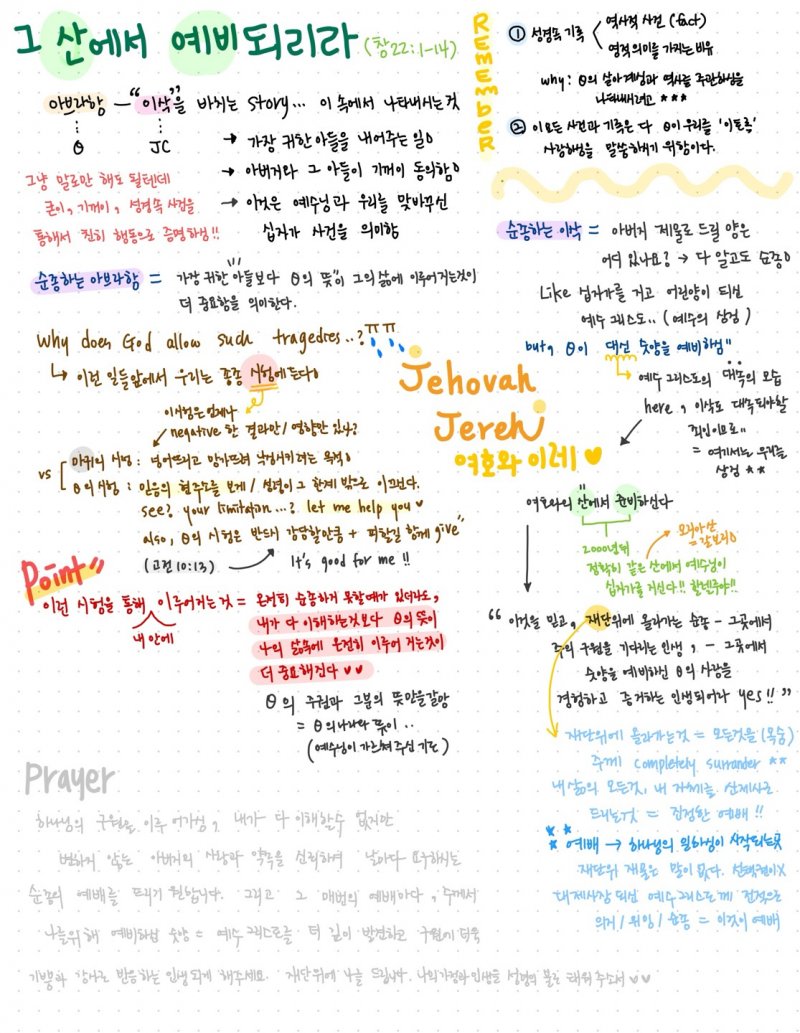 그 산에서 예비되리라 (창22:1-14)
아브라함 — "이삭"을 바치는 story... 이 속에서 나타내시는것
θ JC
→ 가장 귀한아들을 내어주는 일
→ 아버지와 그 아들이 기꺼이 동의함
→ 이것은 예수님과 우리를 맞바꾸신
십자가 사건을 의미함
그냥 말로만 해도 될텐데
굳이, 기꺼이, 성경속 사건을
통해서 친히 행동으로 증명하심!!
순종하는 아브라함 = 가장 귀한 아들보다 θ의 뜻이 그의삶에 이루어지는것이
더 중요함을 의미한다.
Why does God allow such tragedies..? ㅠㅠ
↳ 이런 일들앞에서 우리는 종종 시험에든다
이시험은언제나
negative 한 결과만/영향만 있나?
vs
마귀의 시험 : 넘어뜨리고 망가뜨려 낙정시키려는 목적
θ의 시험 : 믿음의 현주소를 보게/설정이 그 한계 밖으로 이끄신다.
see? your limitation...? let me help you ♥
also, θ의 시험은 반드시 감당할만큼 + 피할길 함께 give"
(고전10:13)
It's good for me!!
Point
이런 시험을 통해 이루어지는것 = 온전히 순종하지 못할때가 있더라도,
내 안에
내가 다 이해하는것보다 θ의 뜻이
나의 삶속에 온전히 이루어 지는것이
더 중요해진다 ♥♥
θ의 주권과 그분의 뜻만을갈망
= θ의나라와 뜻이..
(예수님이 가르쳐 주신 기도)
Prayer
하나님의 구원을 이루어가심, 내가 다 이해할수 없지만
변하지 않는 아버지의 사랑과 약속을 신뢰하며 날마다 요구하시는
순종의 예배를 드리기 원합니다. 그리고 그 매번의 예배마다, 주께서
나를위해 예비하신 숫양 = 예수 그리스도를 더 깊이 발견하고 구원에 더욱
기쁨과 감사로 반응하는 인생되게 해주세요. 재단위에 나를 드립니다. 나의가정과인생을 성령의 불로 태워 주소서 ♥♥
REMEMBER
① 성경속 기록 < 역사적 사건 (fact)
영적 의미를 가지는비유
why : θ의 살아계심과 역사를 주관하심을
나타내시려고 ★★★
② 이 모든 사건과 기록은 다 θ이 우리를 '이토록'
사랑하심을 말씀하시기 위함이다.
순종하는 이삭 = 아버지 제물로 드릴 양은
어디 있나요? → 다 알고도 순종
Like 십자가를 지고 어린양이 되신
예수 그리스도.. (예수의 상징)
but, θ이 대신 숫양을 예비하심"
→ 예수 그리스도의 대속의 모습
here, 이삭도 대속되야할
죄인이므로..
= 여기서는 우리를
상징 ★★
Jehovah
Jereh
여호와 이레 ♥
여호와의 산에서 준비하신다
모리아산
=갈보리
2000년뒤
정확히 같은 산에서 예수님이
십자가를 지신다!! 할렐루야!!
"이것을 믿고, 재단위에 올라가는 순종 - 그곳에서
주의 구원을 기다리는 인생, - 그곳에서
숫양을 예비하신 θ의 사랑을
경험하고 증거하는 인생되어라 yes!!"
재단위에 올라가는것 = 모든것을 (목숨)
주께 completely surrander ★★
내 삶의 모든것, 내 자체를 산제사로
드리는것 = 진정한 예배!!
★★ 예배 → 하나님의 일하심이 시작되는곳
재단위 재물은 말이 없다. 선택권이X
대제사장 되신 예수그리스도께 전적으로
의지/위임/순종 = 이것이 예배